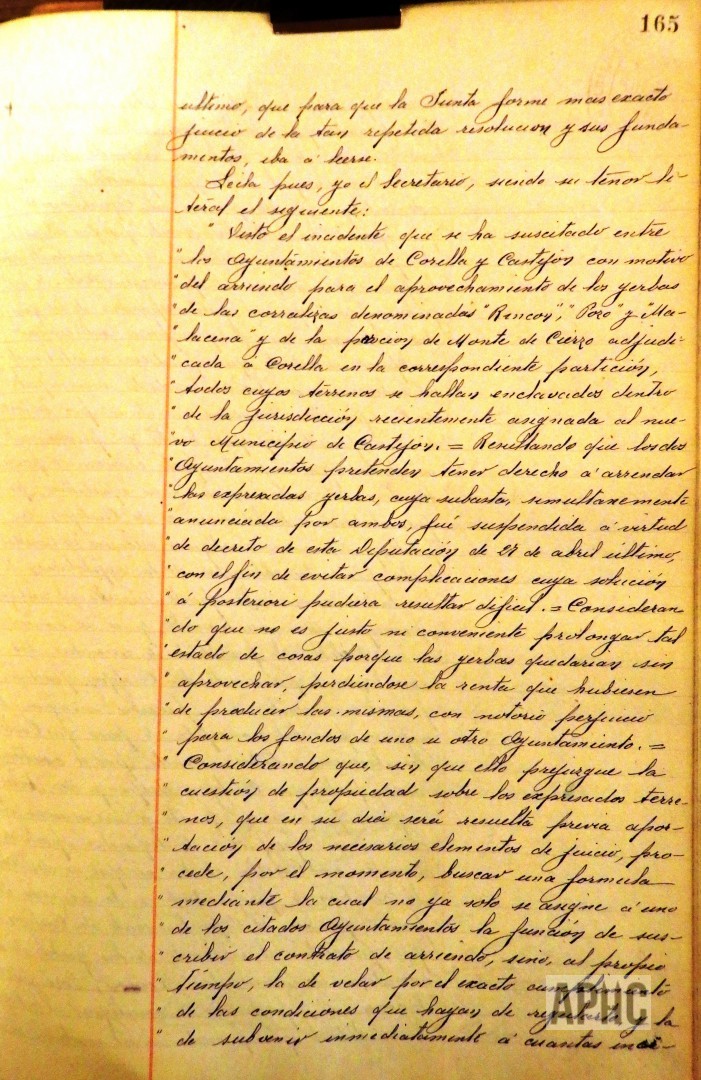 165
ultimo, que para que la Junta forme mas exacto
juicio de la tan repetida resolucion y sus funda-
mentos, iba á leerse.
Leila pues, yo el Secretario, siendo su tenor li-
teral el siguiente:
" Visto el incidente que se ha suscitado entre
" los Ayuntamientos de Corella y Castejon con motivo
" del arriendo para el aprovechamiento de los yerbas
" de las corralizas denominadas "Rincon", "Pozo" y "Ma-
" lacena" y de la porcion de Monte de Cierzo adjudi-
" cada á Corella en la correspondiente partición,
" todos cuyos terrenos se hallan enclavados dentro
" de la jurisdicción recientemente asignada al nue-
" vo Municipio de Castejon. = Resultando que los dos
" Ayuntamientos pretenden tener derecho á arrendar
" las expresadas yerbas, cuya subasta, simultanemente
" anunciada por ambos, fué suspendida á virtud
" de decreto de esta Diputación de 27 de abril último,
" con el fin de evitar complicaciones cuya solución
" á posteriori pudiera resultar dificil. = Consideran
" do que no es justo ni conveniente prolongar tal
" estado de cosas porque las yerbas quedarian sin
" aprovechar, perdiendose la renta que hubiesen
" de producir las mismas, con notorio perjuicio
" para los fondos de uno u otro Ayuntamiento. =
" Considerando que, sin que ello prejuzgue la
" cuestión de propiedad sobre los expresados terre-
" nos, que en su dia será resuelta previa apor-
" tación de los necesarios elementos de juicio, pro-
" cede, por el momento, buscar una formula
" mediante la cual no ya solo se asigne á uno
" de los citados Ayuntamientos la función de sus-
" cribir el contrato de arriendo, sino, al propio
" tiempo, la de velar por el exacto cumplimiento
" de las condiciones que hayan de regularlo y la
" de subvenir inmediatamente á cuantas inci-
APHC